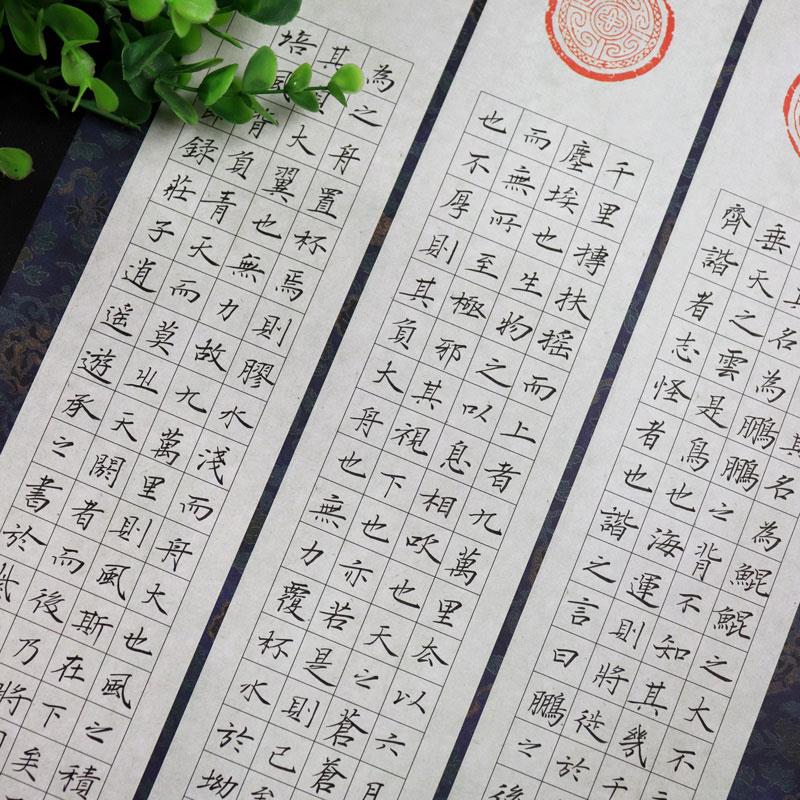 其名為鯤鯤之大不
其名為鵬鵬之背不知其幾千
垂天之雲是鳥也海運則將徙於
齊諧者志怪者也諧之言曰鵬之後
千里摶扶搖而上者九萬里去以六月
塵埃也生物之以息相吹也天之蒼蒼
而無所至極邪其視下也亦若是則已
也不厚則其負大舟也無力覆杯水於坳
為之舟置杯焉則膠水淺而舟大也風之積
其負大翼也無力故九萬里則風斯在下矣
培風背負青天而莫之夭閼者而後乃將
錄莊子逍遙遊承之書於